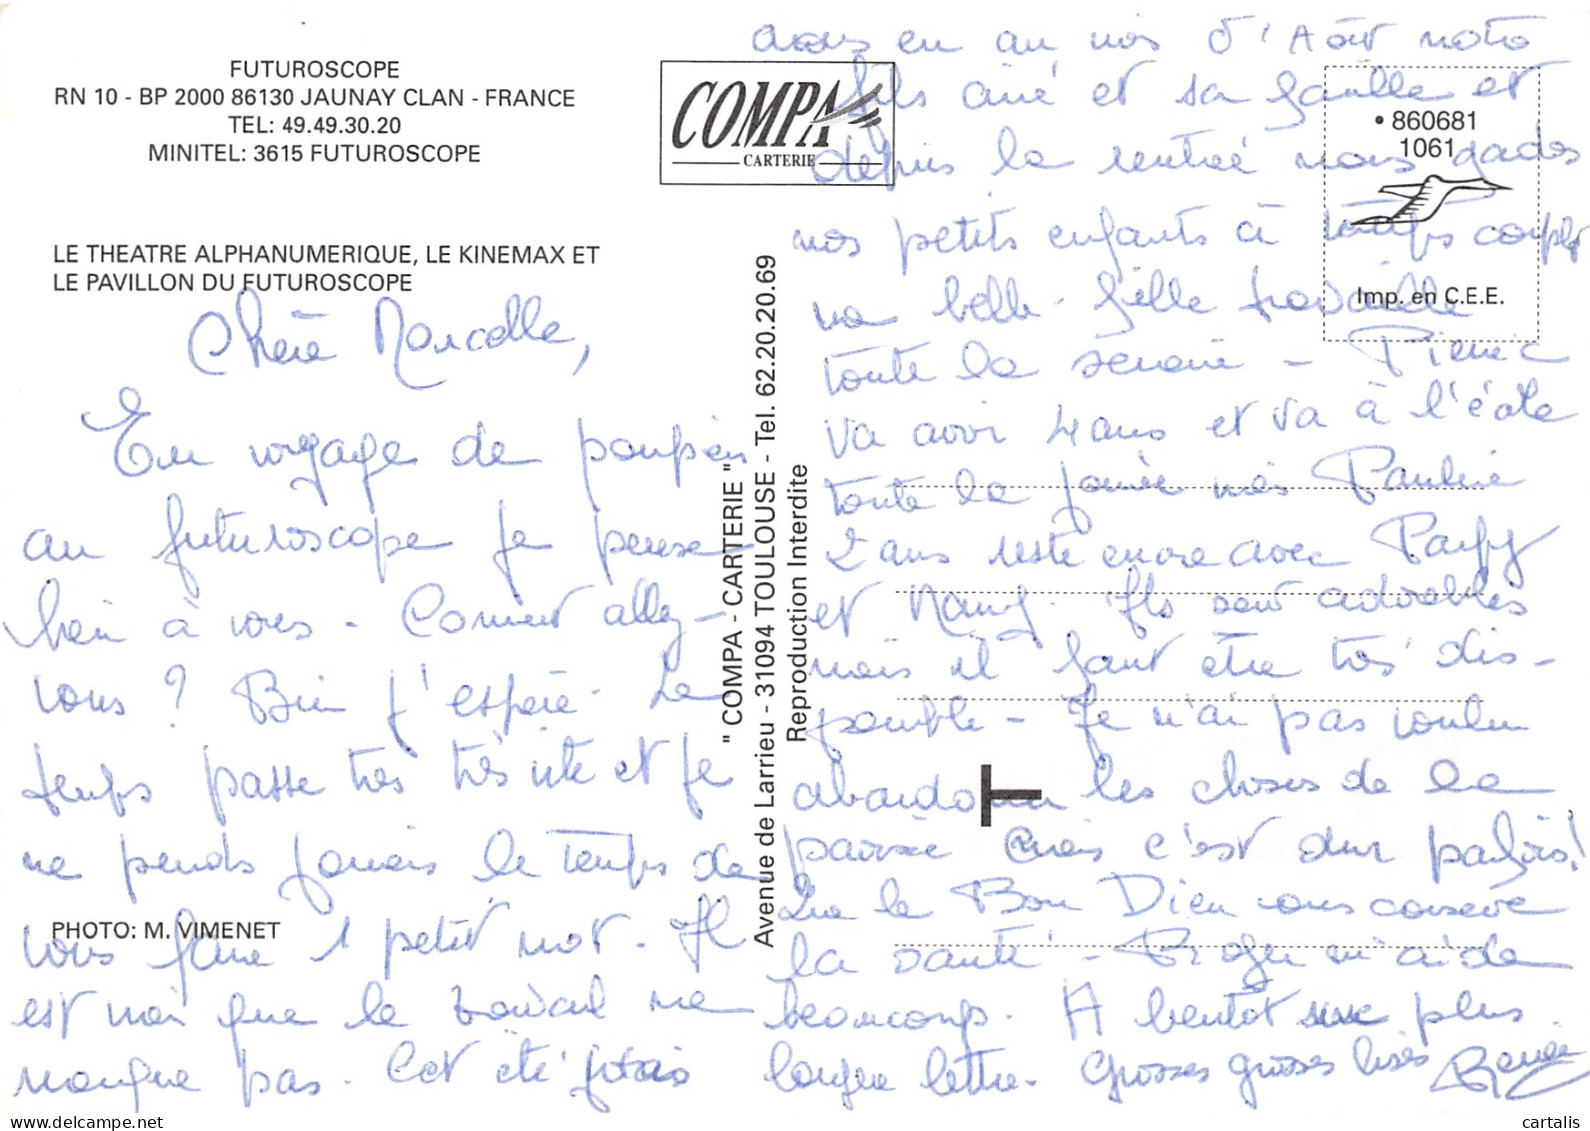 FUTUROSCOPE
RN 10 - BP 2000 86130 JAUNAY CLAN - FRANCE
TEL: 49.49.30.20
MINITEL: 3615 FUTUROSCOPE
LE THEATRE ALPHANUMERIQUE, LE KINEMAX ET
LE PAVILLON DU FUTUROSCOPE
Chère Marcelle,
En voyage de
au futuroscope je pense
bien à vous - Comment allez-
vous ? Bien j'espère - Le
temps passe très très vite et je
ne prends jamais le temps de
vous faire 1 petit mot - Il
est vrai que le travail ne
manque pas - Cet été
PHOTO: M. VIMENET
COMPA
CARTERIE
" COMPA - CARTERIE "
Avenue de Larrieu - 31094 TOULOUSE - Tel. 62.20.20.69
Reproduction Interdite
• 860681
1061
Imp. en C.E.E.
avons eu au mois d'Août notre
fils ainé et sa famille et
depuis la rentrée nous gardons
nos petits enfants à temps complet
ma belle-fille travaille
toute la semaine - Pierre
va avoir 4 ans et va à l'école
toute la journée mais Pauline
2 ans reste encore avec Papy
et Mamy. Ils sont adorables
mais il faut être très dis-
ponible - Je n'ai pas voulu
abandonner les choses de la
paroisse mais c'est dur parfois!
Que le Bon Dieu vous conserve
la santé - Roger m'aide
beaucoup. A bientôt une plus
longue lettre. Grosses grosses bises Renée
T
cartalis
www.delcampe.net